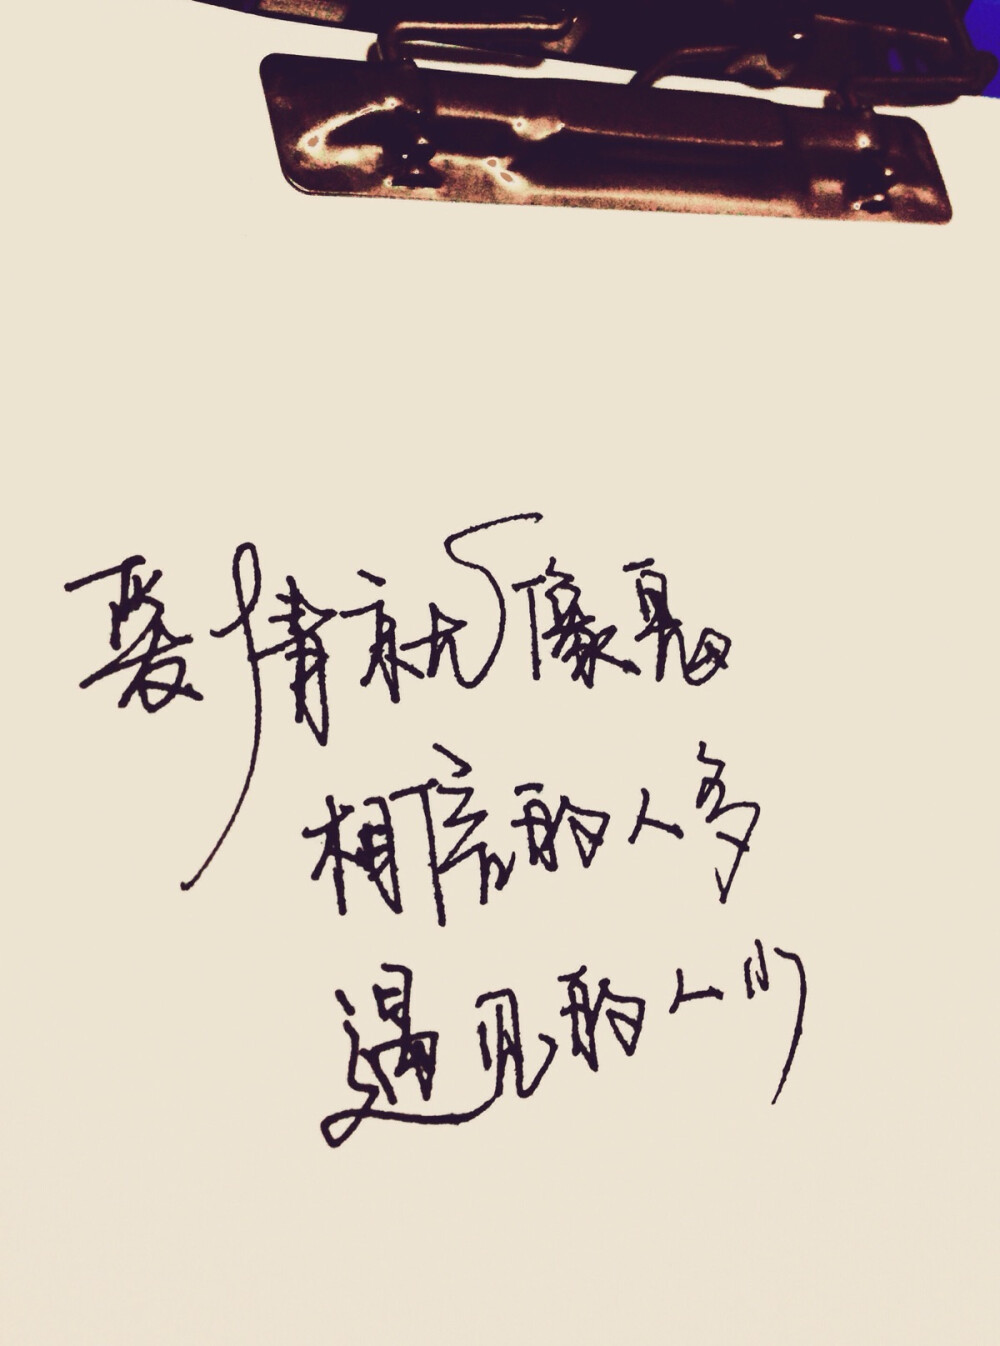 爱情就像鬼
相信的人多
遇见的人少